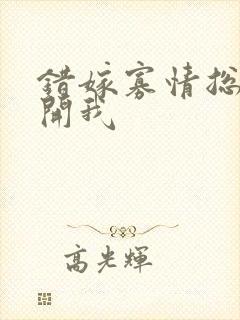 錯嫁寡情总
開我
高光輝